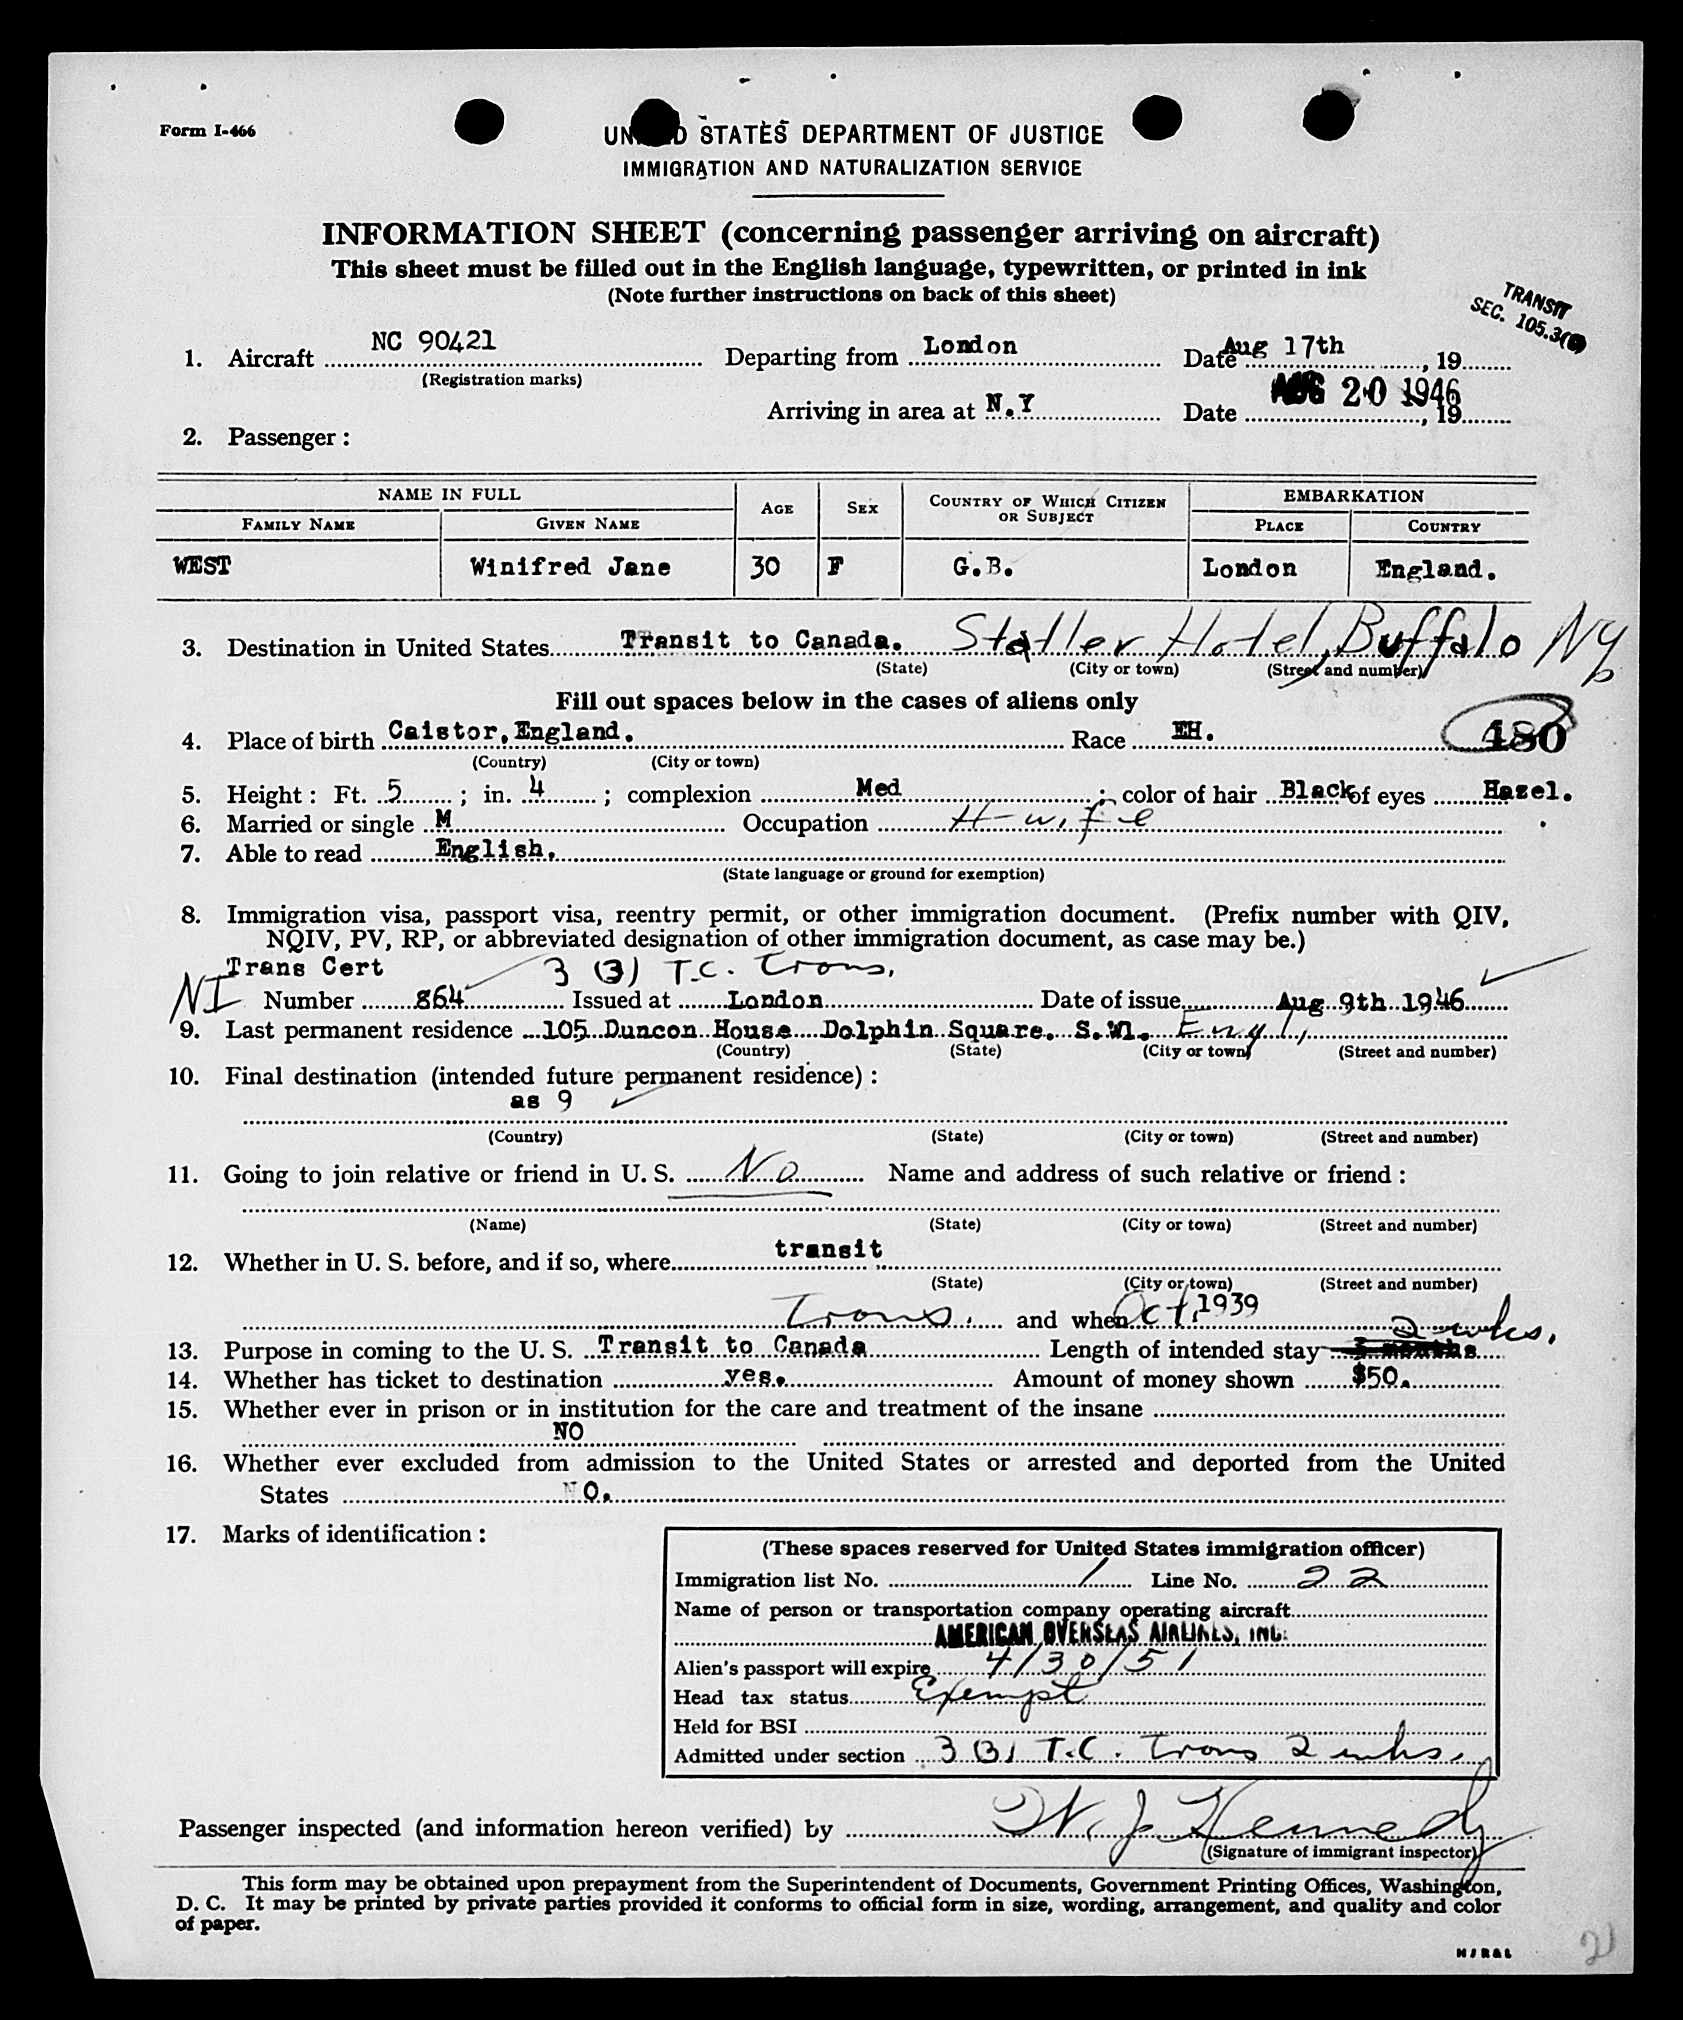 Form I-466
UNITED STATES DEPARTMENT OF JUSTICE
IMMIGRATION AND NATURALIZATION SERVICE
INFORMATION SHEET (concerning passenger arriving on aircraft)
This sheet must be filled out in the English language, typewritten, or printed in ink
(Note further instructions on back of this sheet)
TRANSIT
SEC. 105.3
1. Aircraft NC 90421 Departing from London Date Aug 17th, 19
(Registration marks)
Arriving in area at N.Y Date AUG 20 1946, 19
2. Passenger:
NAME IN FULL AGE SEX COUNTRY OF WHICH CITIZEN OR SUBJECT EMBARKATION
FAMILY NAME GIVEN NAME PLACE COUNTRY
WEST Winifred Jane 30 F G.B. London England.
3. Destination in United States Transit to Canada. Statler Hotel, Buffalo NY
(State) (City or town) (Street and number)
Fill out spaces below in the cases of aliens only
4. Place of birth Caistor, England. Race EH. 480
(Country) (City or town)
5. Height: Ft. 5; in. 4; complexion Med; color of hair Black of eyes Hazel.
6. Married or single M Occupation H-wife
7. Able to read English.
(State language or ground for exemption)
8. Immigration visa, passport visa, reentry permit, or other immigration document. (Prefix number with QIV,
NQIV, PV, RP, or abbreviated designation of other immigration document, as case may be.)
Trans Cert 3 (3) T.C. Trans.
NI Number 864 Issued at London Date of issue Aug 9th 1946
9. Last permanent residence 105 Duncon House Dolphin Square. S.W1. Engl.,
(Country) (State) (City or town) (Street and number)
10. Final destination (intended future permanent residence):
as 9
(Country) (State) (City or town) (Street and number)
11. Going to join relative or friend in U. S. No Name and address of such relative or friend:
(Name) (State) (City or town) (Street and number)
12. Whether in U. S. before, and if so, where transit
(State) (City or town) (Street and number)
Trans. and when Oct, 1939
13. Purpose in coming to the U. S. Transit to Canada Length of intended stay 3 months 2 wks.
14. Whether has ticket to destination yes. Amount of money shown $50.
15. Whether ever in prison or in institution for the care and treatment of the insane
NO
16. Whether ever excluded from admission to the United States or arrested and deported from the United
States NO.
17. Marks of identification:
(These spaces reserved for United States immigration officer)
Immigration list No. 1 Line No. 22
Name of person or transportation company operating aircraft
AMERICAN OVERSEAS AIRLINES, INC.
Alien's passport will expire 4/30/51
Head tax status Exempt
Held for BSI
Admitted under section 3 (3) T.C. Trans 2 wks.
Passenger inspected (and information hereon verified) by W. J. Kennedy
(Signature of immigrant inspector)
This form may be obtained upon prepayment from the Superintendent of Documents, Government Printing Offices, Washington,
D. C. It may be printed by private parties provided it conforms to official form in size, wording, arrangement, and quality and color
of paper.
21